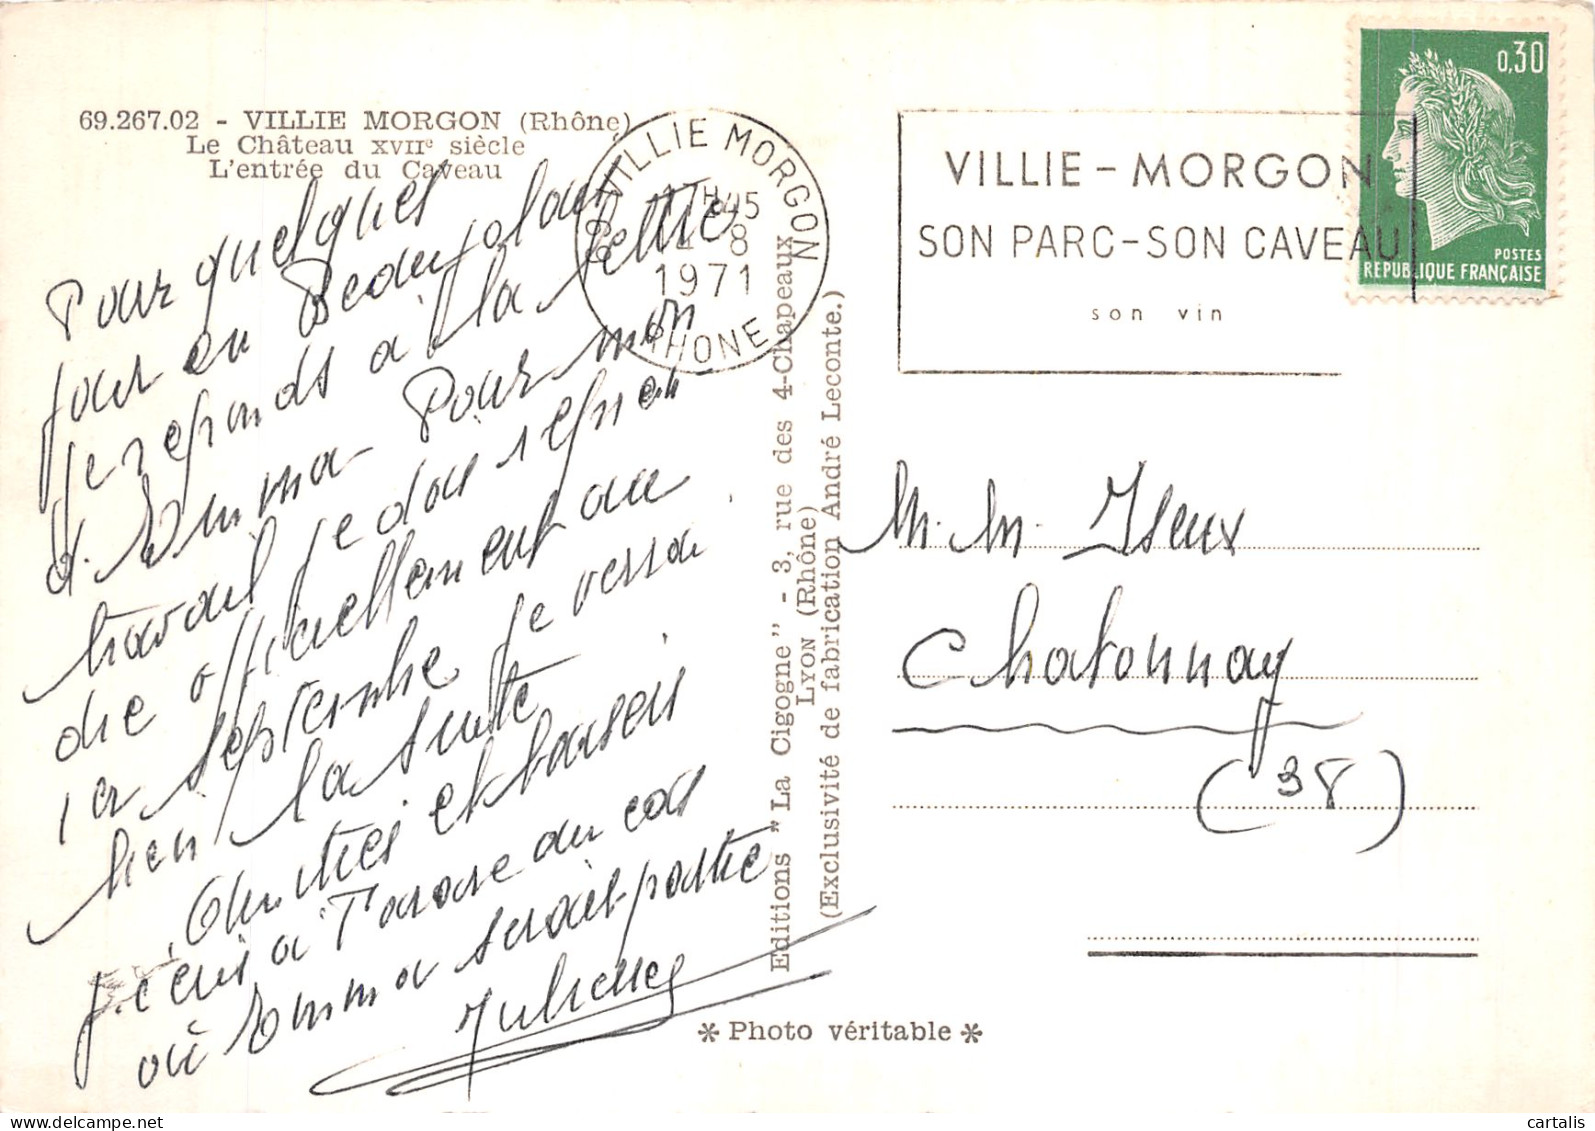 69.267.02 - VILLIE MORGON (Rhône)
Le Château XVIIᵉ siècle
L'entrée du Caveau
Pour quelques
jour en Beaujolais
je reponds à la lettre
d. Emma. Pour mon
travail je dois
officiellement au
1er septembre je verrai
bien la suite
Amitiés et baisers
j'ecris à Tarare au cas
où Emma serait partie
69 VILLIE MORGON
RHONE
H45
8
1971
VILLIE - MORGON
SON PARC - SON CAVEAU
son vin
0,30
POSTES
REPUBLIQUE FRANÇAISE
Editions "La Cigogne" - 3, rue des 4-Chapeaux
LYON (Rhône)
(Exclusivité de fabrication André Leconte.)
M. M. Iseux
Chatonnay
(38)
✻ Photo véritable ✻
cartalis